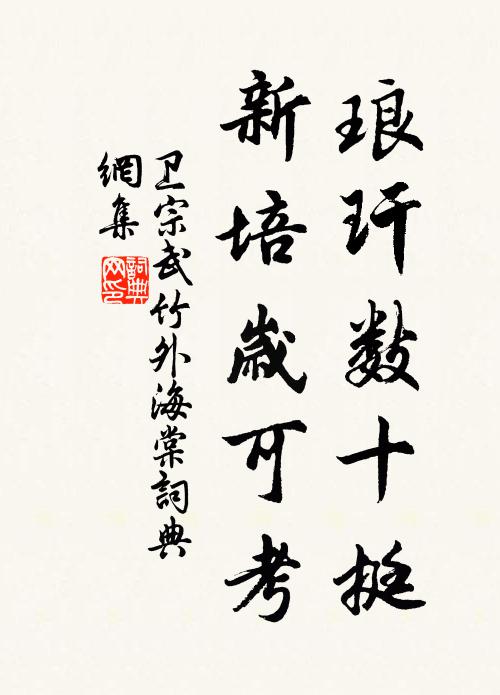 琅玕数十挺
新培歳可考
卫宗武竹外海棠詞典
網集
詞典
网印